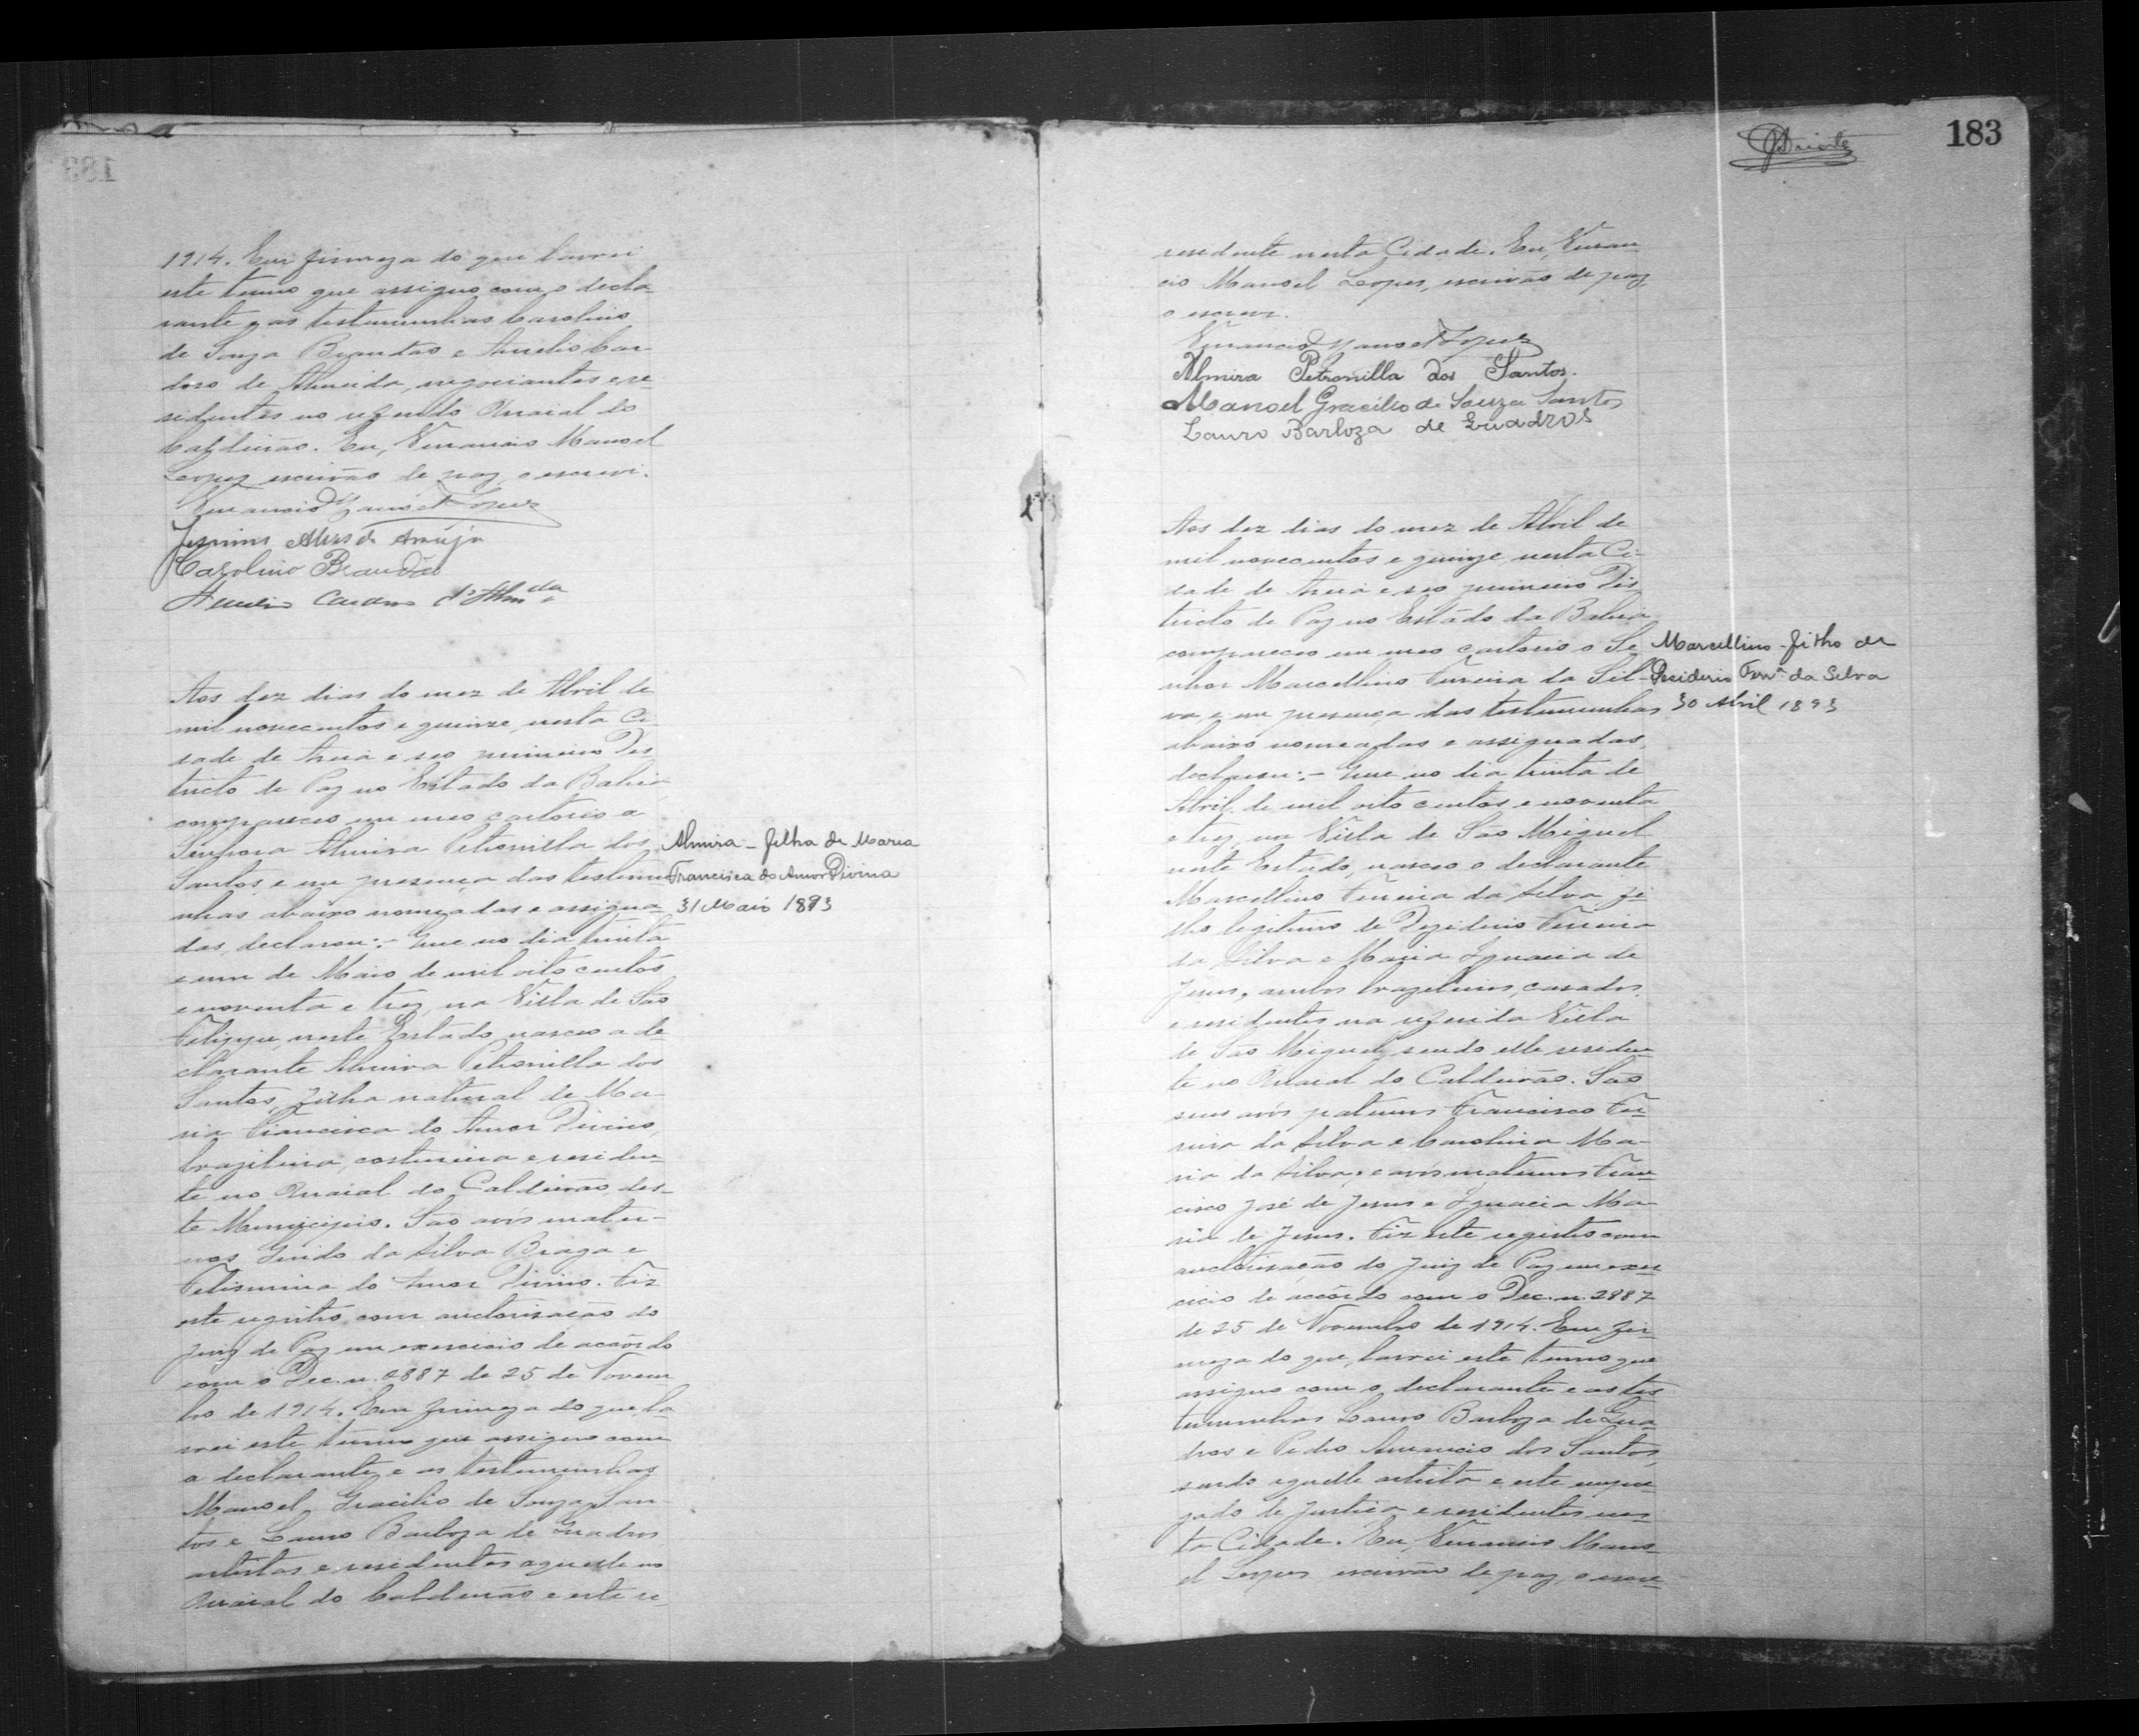 1914. Em firmeza do que lavrei
este termo que assigno com o decla
rante e as testemunhas Carolino
de Souza Brandão e Aurelio Car
doso de Almeida, negociantes e re
sidentes no referido Arraial do
Caldeirão. Eu, Venancio Manoel
Lopes escrivão de paz o escrevi.
Venancio Manoel Lopes
Alves de Araujo
Carolino Brandão
Aurelio Cardoso d'Almda
Aos dez dias do mez de Abril de
mil novecentos e quinze, nesta Ci
dade de Areia e seo primeiro Dis
tricto de Paz no Estado da Bahia
compareceo em meo cartorio a
Senhora Almira Petronilla dos
Santos, e em presença das testemu
nhas abaixo nomeadas e assigna
das, declarou:- Que no dia trinta
e um de Maio de mil oito centos
e noventa e trez, na Villa de São
Felippe, neste Estado, nasceo a de
clarante Almira Petronilla dos
Santos, filha natural de Ma-
ria Francisca do Amor Divino,
brazileira, costureira e residen
te no Arraial do Caldeirão, des-
te Municipio. São avós mater-
nos Guido da Silva Braga e
Felismina do Amor Divino. Fiz
este registro com auctorisação do
Juiz de Paz em exercicio de accôrdo
com o Dec. n. 2887 de 25 de Novem
bro de 1914. Em firmeza do que la
vrei este termo que assigno com
a declarante e as testemunhas
Manoel Gracilio de Souza San-
tos e Lauro Barboza de Quadros
artistas e residentes aquelle no
Arraial do Caldeirão e este re
Almira - filha de Maria
Francisca do Amor Divina
31 Maio 1893
183
residente nesta Cidade. Eu, Venan
cio Manoel Lopes, escrivão de paz
o escrevi.
Venancio Manoel Lopes
Almira Petronilla dos Santos.
Manoel Gracilio de Souza Santos
Lauro Barboza de Quadros
Aos dez dias do mez de Abril de
mil novecentos e quinze, nesta Ci-
dade de Areia e seo primeiro Dis
tricto de Paz no Estádo da Bahia
compareceo em meo cartorio o Se
nhor Marcellino Ferreira da Sil-
va, e em presença das testemunhas
abaixo nomeadas e assignadas,
declarou:- Que no dia trinta de
Abril de mil oito centos e noventa
e trez, na Villa de São Miguel
neste Estado, nasceo o declarante
Marcellino Ferreira da Silva fi
lho legitimo de Deziderio Ferreira
da Silva e Maria Ignacia de
Jesus, ambos brazileiros, casados,
e residentes na referida Villa
de São Miguel, sendo elle residen
te no Arraial do Caldeirão. São
seus avós paternos Francisco Fer
reira da Silva e Carolina Ma-
ria da Silva; e avós maternos Fran
cisco José de Jesus e Ignacia Ma-
ria de Jesus. Fiz este registro com
auctorisação do Juiz de Paz em exer
cicio de accôrdo com o Dec. n. 2887
de 25 de Novembro de 1914. Em fir
meza do que, lavrei este termo que
assigno com o declarante e as tes
temunhas Lauro Barboza de Qua
dros e Pedro Amancio dos Santos,
sendo aquelle artista e este empre
gado de Justiça e residentes nes
ta Cidade. Eu, Venancio Mano
el Lopes escrivão de paz, o escre
Marcellino - filho de
Desiderio Ferrª da Silva
30 Abril 1893